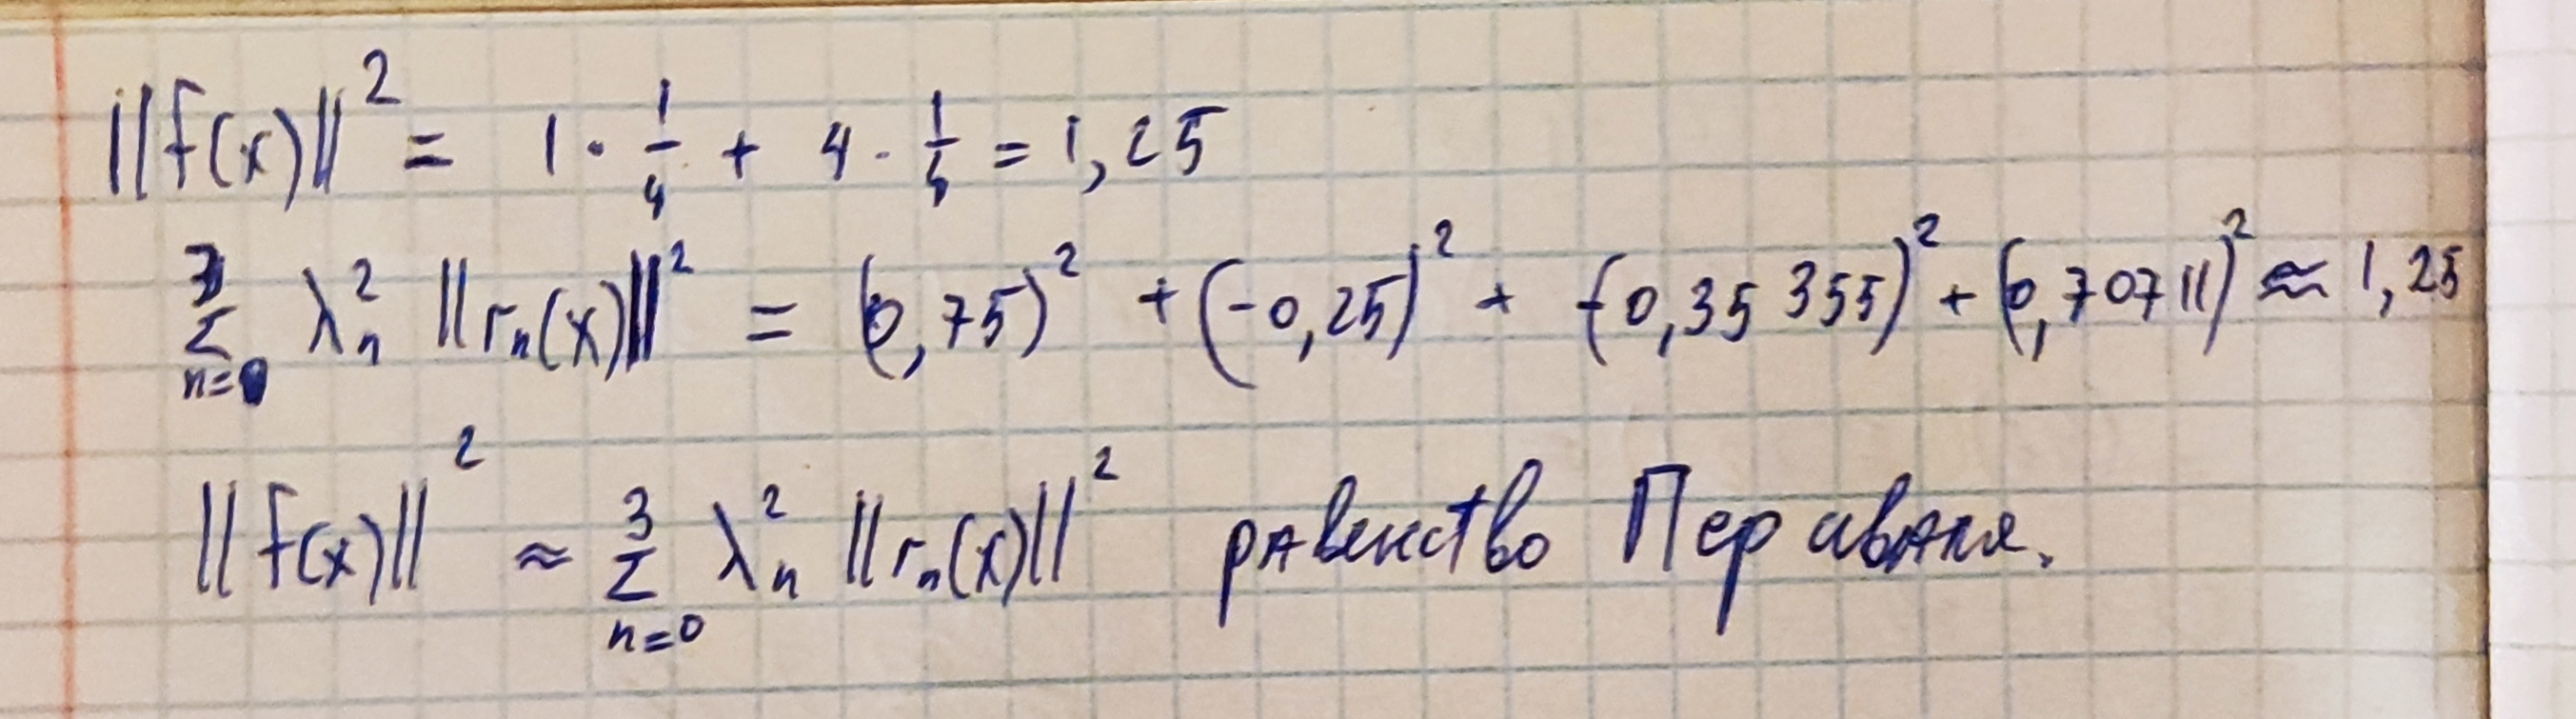 ||f(x)||² = 1 · 1/4 + 4 · 1/4 = 1,25
3 Σ n=0 λₙ² ||rₙ(x)||² = (0,75)² + (-0,25)² + (-0,35355)² + (0,70711)² ≈ 1,25
||f(x)||² ≈ 3 Σ n=0 λₙ² ||rₙ(x)||² равенство Персиваля.